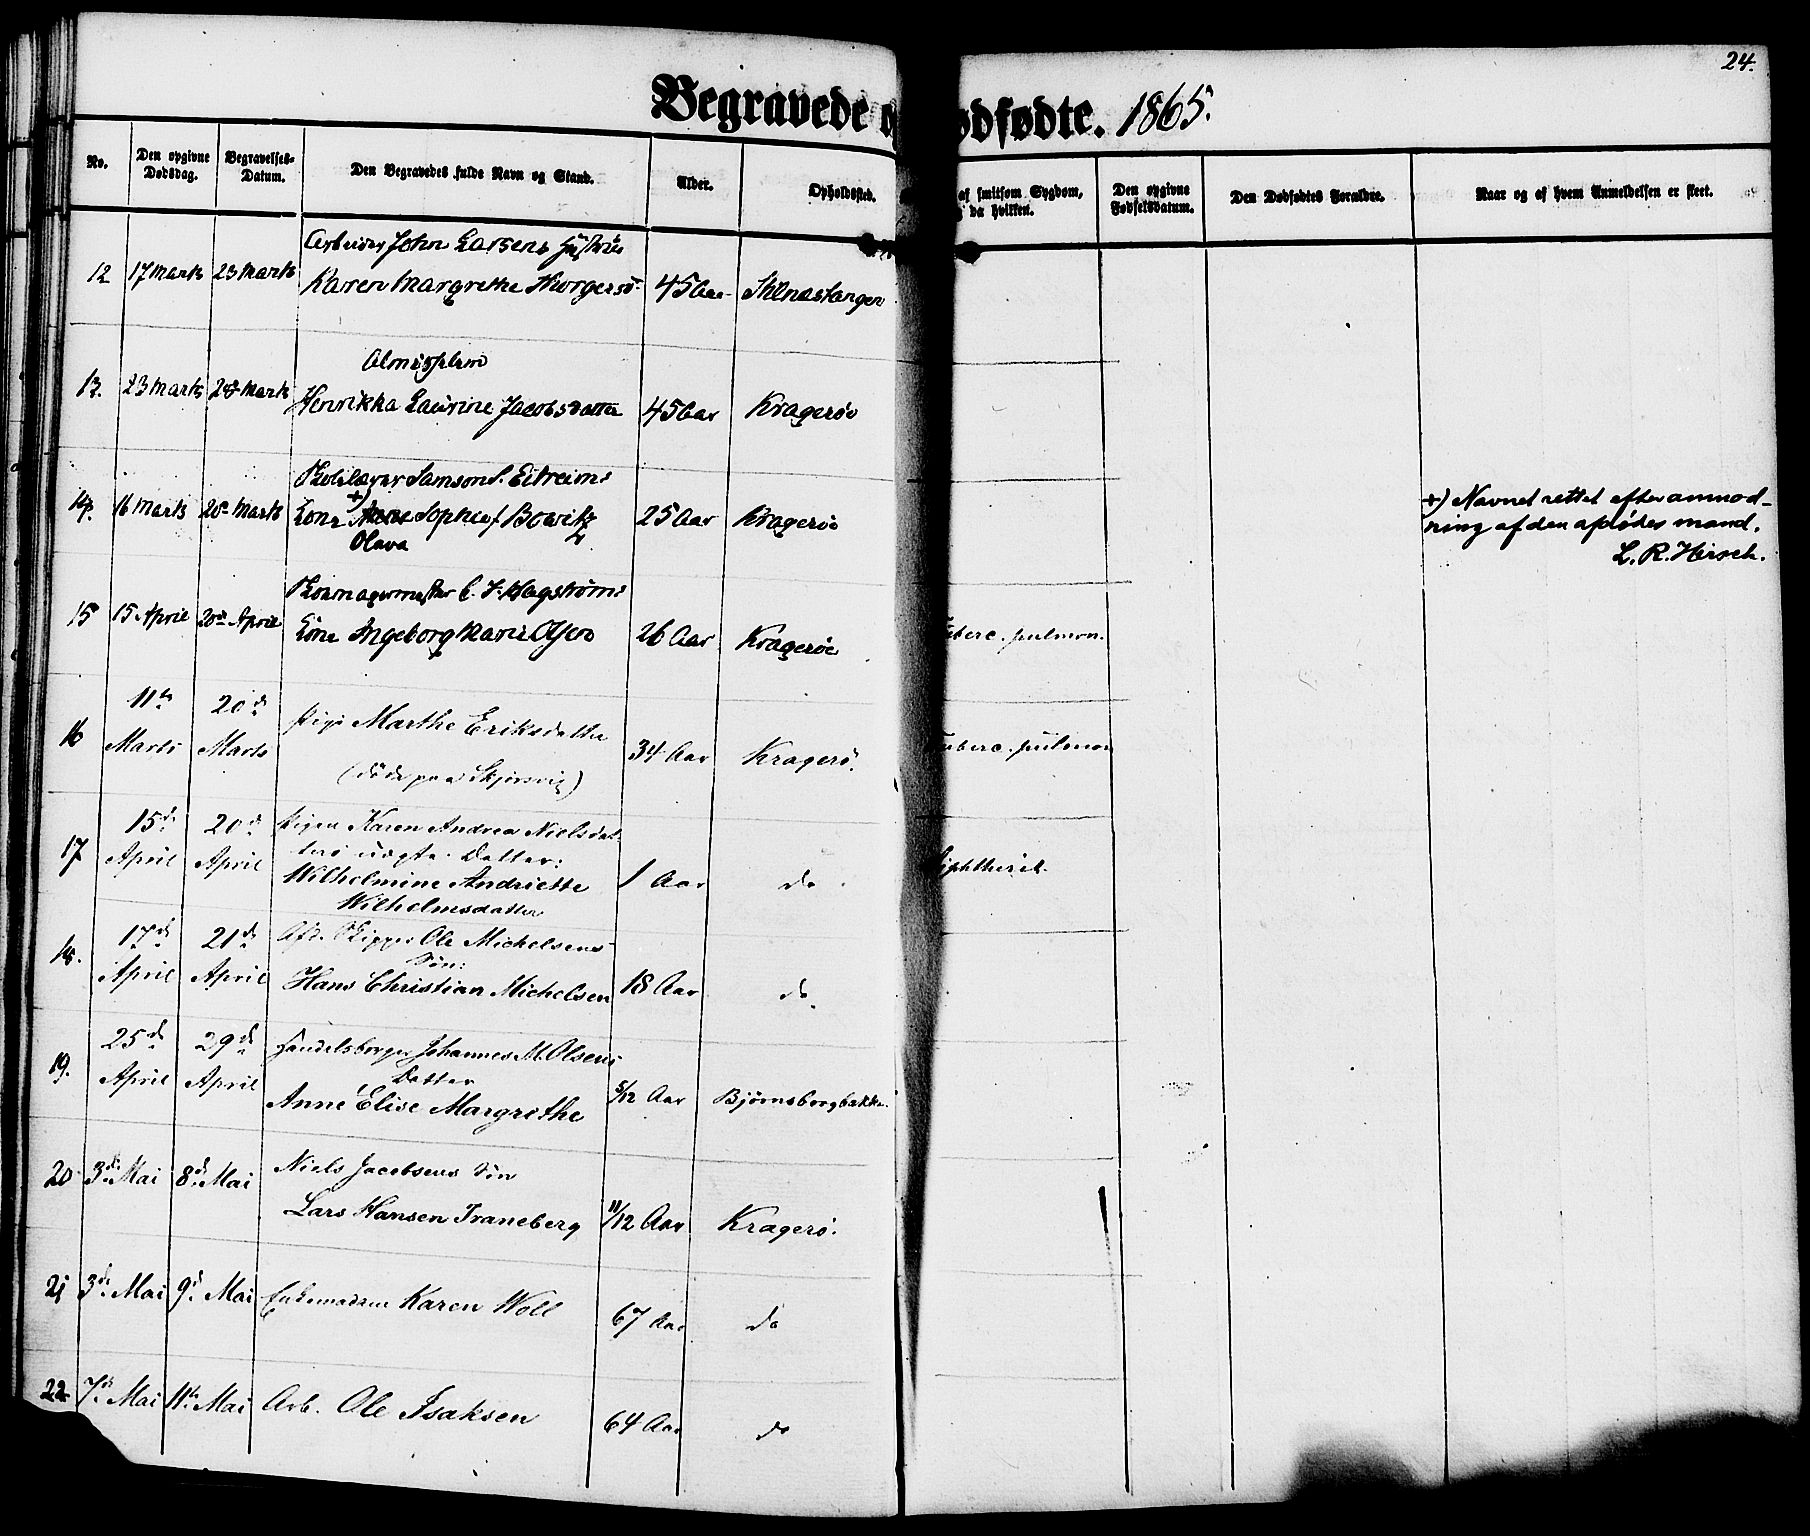 24.
Begravede o ødfødte. 1865.
No.
Den opgivne Dødsdag.
Begravelses-Datum.
Den Begravedes fulde Navn og Stand.
Alder.
Opholdssted.
af smitsom Sygdom,
da hvilken.
Den opgivne Fødselsdatum.
Den Dødfødtes Forældre.
Naar og af hvem Anmeldelsen er skeet.
Arbeider John Larsens Hustrue
12 17 Marts 23 Marts Karen Margrethe 45 Aar
Almisslem
13. 23 Marts 28 Marts Henrikka Laurine Jacobsdatter 45 Aar Kragerøe
Skolelærer Samson S. Eitreims
14. 16 Marts 20 Marts Kone +) Sophie f. Bowitz 25 Aar Kragerøe
Olava
+) Navnet rettet efter anmod-
ning af den afdødes mand.
L. R. Hirsch.
Skomagermester C. J. Hagstrøms
15 15 April 20de April Kone Ingeborg Marie Olsen 26 Aar Kragerøe Tuberc. pulmon.
16 11te Marts 20de Marts Pige Marthe Eriksdatter 34 Aar Kragerö. Tuberc. pulmon
(döde paa Skjørsvig)
17 15de April 20de April Pigen Karen Andrea Nielsdat-
ters uægte Datter:
Wilhelmine Andriette 1 Aar do. Diphtherit.
Wilhelmsdatter
18. 17de April 21de April Afd. Skipper Ole Michelsens
Søn:
Hans Christian Michelsen 18 Aar do.
19. 25de April 29de April Handelsborger Johannes M. Olsens
Datter
Anne Elise Margrethe 5/12 Aar Bjørnsborgbakke.
20 3de Mai 8de Mai Niels Jacobsens Søn
Lars Hansen Traneberg 11/12 Aar Kragerö.
21 3de Mai 9de Mai Enkemadam Karen Woll 67 Aar do
22 7de Mai 11te Mai Arb. Ole Isaksen 64 Aar do